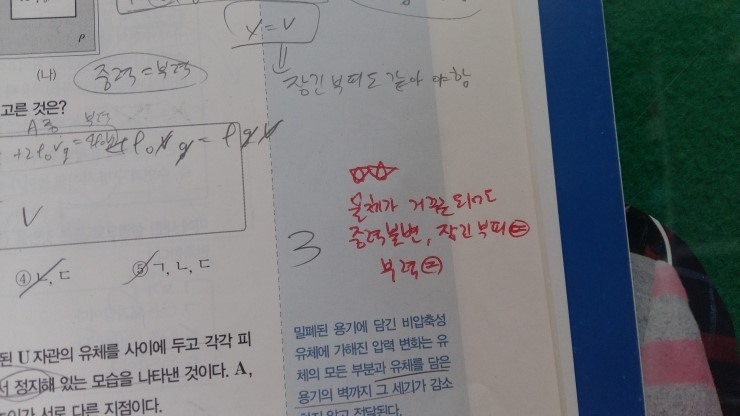 ρ
x = v
(나)
중력 = 부력
잠긴 부피도 같아야 함
고른 것은?
부력
V
3
물체가 거꾸로 되어도
중력불변, 잠긴부피 =
부력 =
④ ㄴ, ㄷ
⑤ ㄱ, ㄴ, ㄷ
된 U자관의 유체를 사이에 두고 각각 피
서 정지해 있는 모습을 나타낸 것이다. A,
서로 다른 지점이다.
밀폐된 용기에 담긴 비압축성
유체에 가해진 압력 변화는 유
체의 모든 부분과 유체를 담은
용기의 벽까지 그 세기가 감소
하지 않고 전달된다.